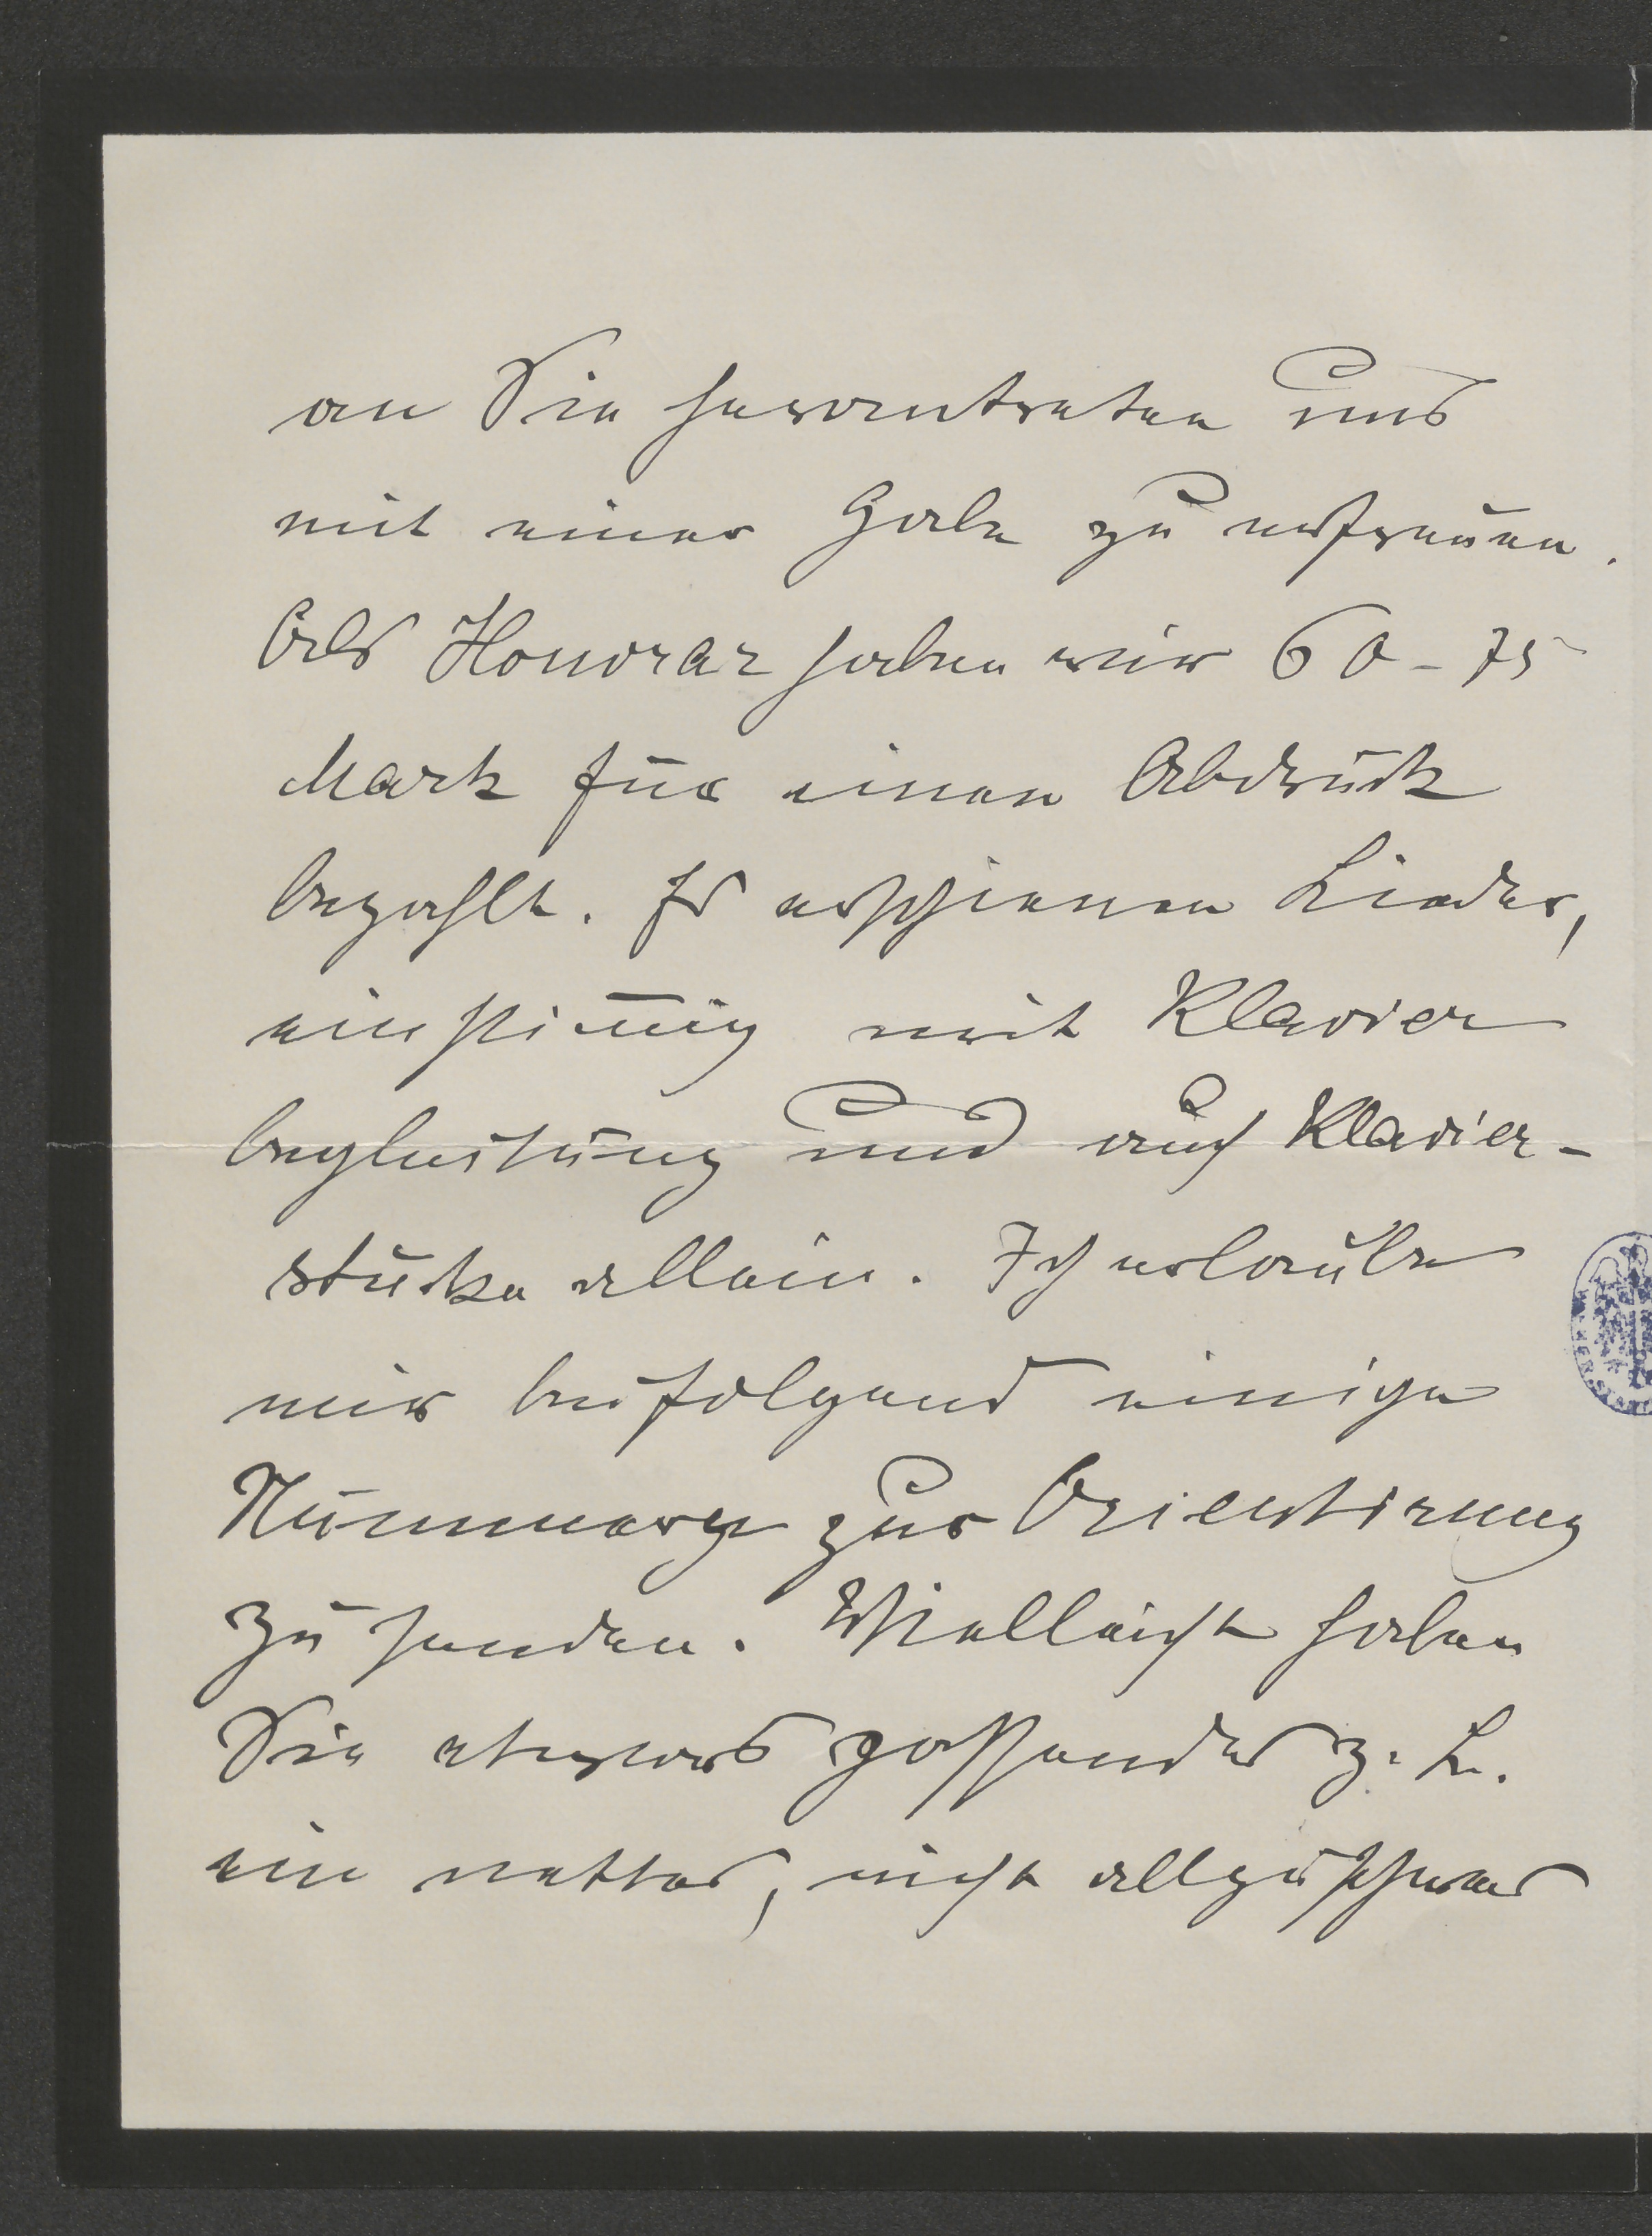 an Sie herantreten uns
mit einer Gabe zu erfreuen.
Als Honorar haben wir 60 - 75
Mark für einen Abdruck
bezahlt. Es erschienen Lieder,
einstim̅ig mit Klavier
begleitung und auch Klavier-
stücke allein. Ich erlaube
mir beifolgend einige
Nummern zur Orientirung
zu senden. Vielleicht haben
Sie etwas passendes z. B.
ein nettes, nicht allzuschweres